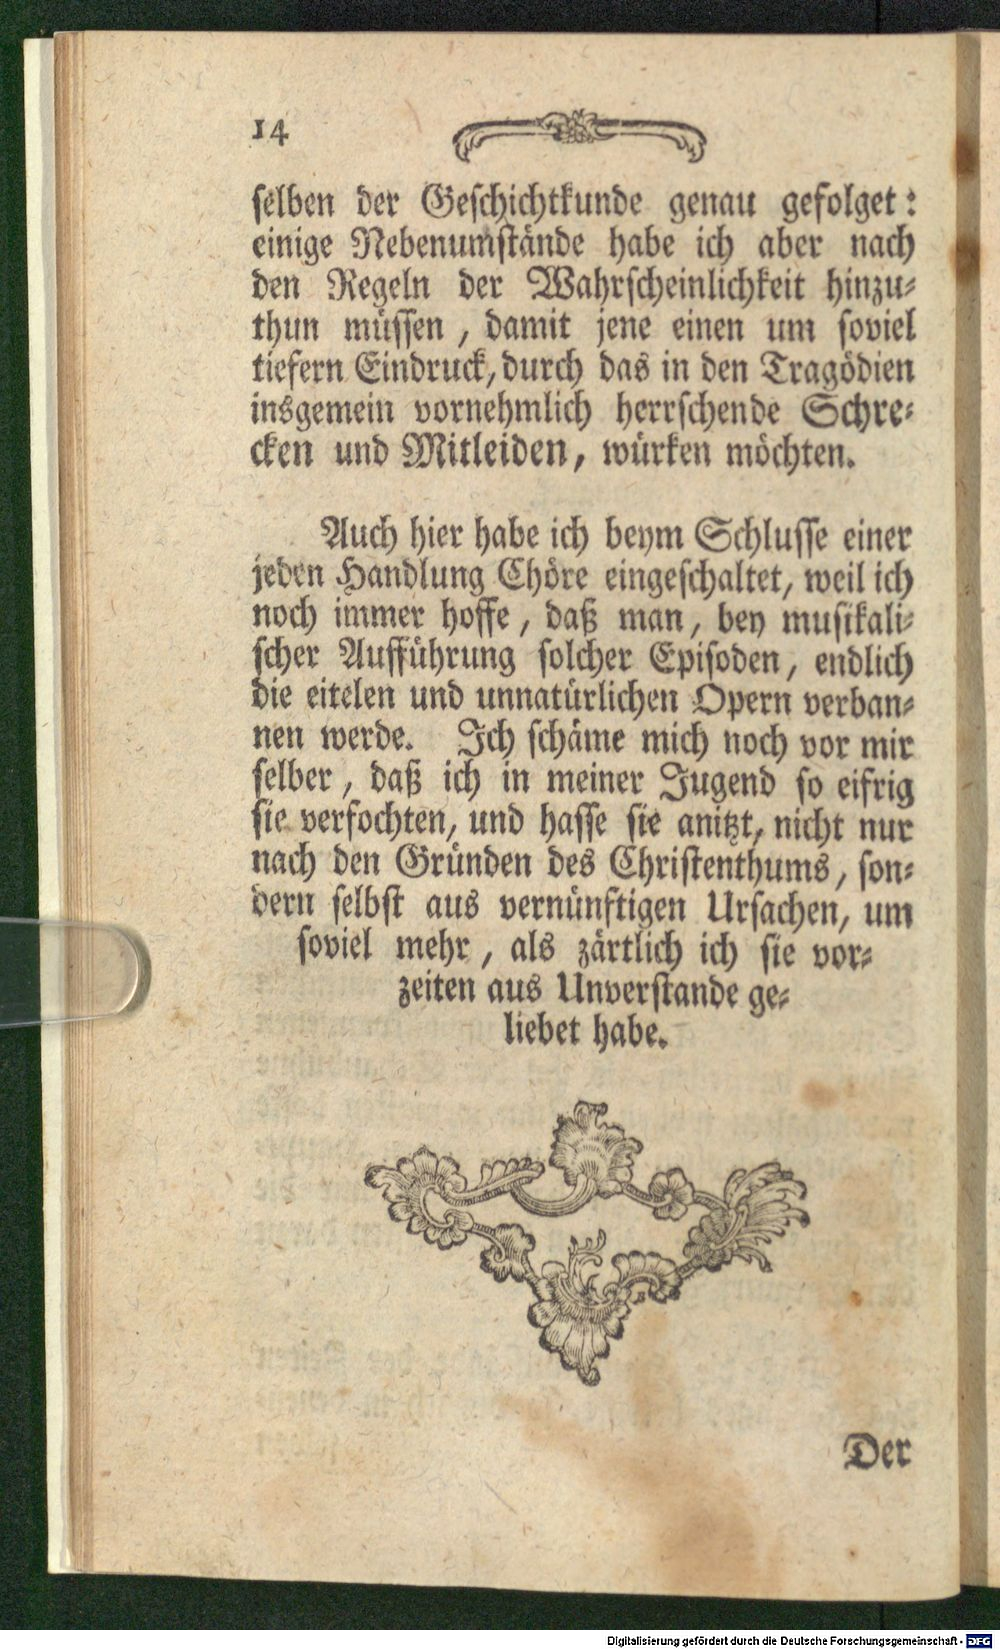 14
selben der Geschichtkunde genau gefolget:
einige Nebenumstände habe ich aber nach
den Regeln der Wahrscheinlichkeit hinzu-
thun müssen, damit jene einen um soviel
tiefern Eindruck, durch das in den Tragödien
insgemein vornehmlich herrschende Schre-
cken und Mitleiden, würken möchten.
Auch hier habe ich beym Schlusse einer
jeden Handlung Chöre eingeschaltet, weil ich
noch immer hoffe, daß man, bey musikali-
scher Aufführung solcher Episoden, endlich
die eitelen und unnatürlichen Opern verban-
nen werde. Ich schäme mich noch vor mir
selber, daß ich in meiner Jugend so eifrig
sie verfochten, und hasse sie anitzt, nicht nur
nach den Gründen des Christenthums, son-
dern selbst aus vernünftigen Ursachen, um
soviel mehr, als zärtlich ich sie vor-
zeiten aus Unverstande ge-
liebet habe.
Der
Digitalisierung gefördert durch die Deutsche Forschungsgemeinschaft - DFG